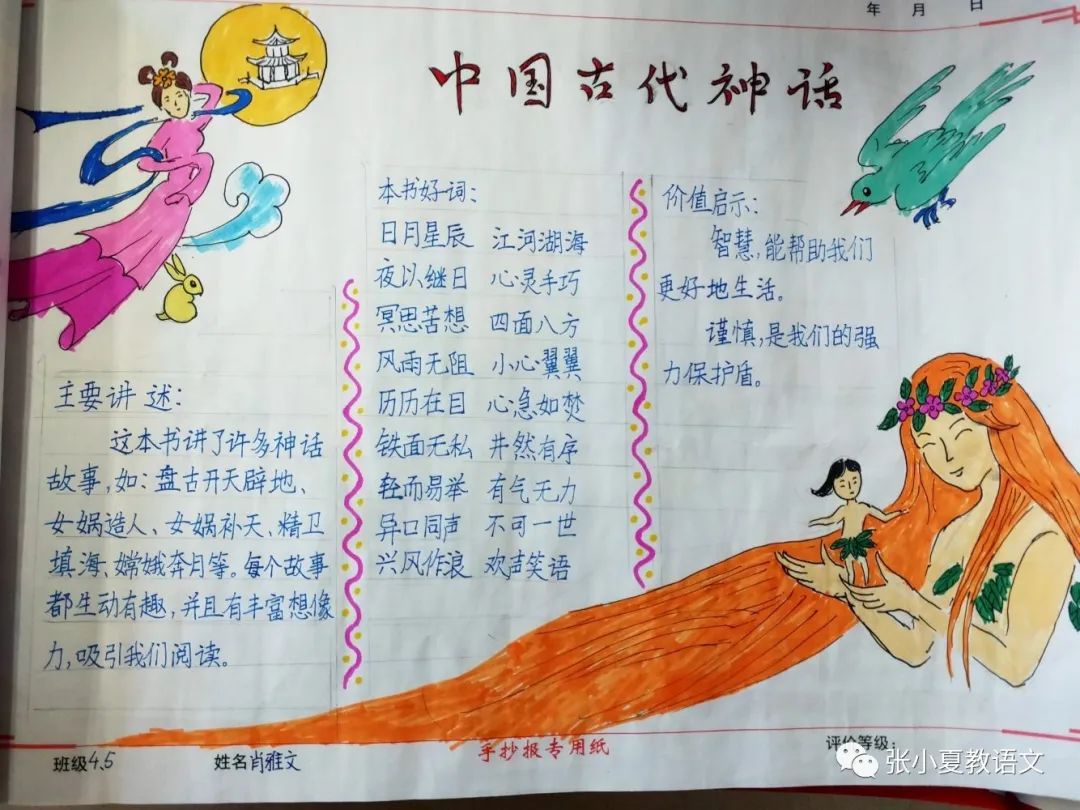 年 月 日
中国古代神话
主要讲述:
这本书讲了许多神话
故事,如:盘古开天辟地、
女娲造人、女娲补天、精卫
填海、嫦娥奔月等。每个故事
都生动有趣,并且有丰富想像
力,吸引我们阅读。
本书好词:
日月星辰 江河湖海
夜以继日 心灵手巧
冥思苦想 四面八方
风雨无阻 小心翼翼
历历在目 心急如焚
铁面无私 井然有序
轻而易举 有气无力
异口同声 不可一世
兴风作浪 欢声笑语
价值启示:
智慧,能帮助我们
更好地生活。
谨慎,是我们的强
力保护盾。
班级4.5 姓名肖雅文 手抄报专用纸 评价等级:
张小夏教语文